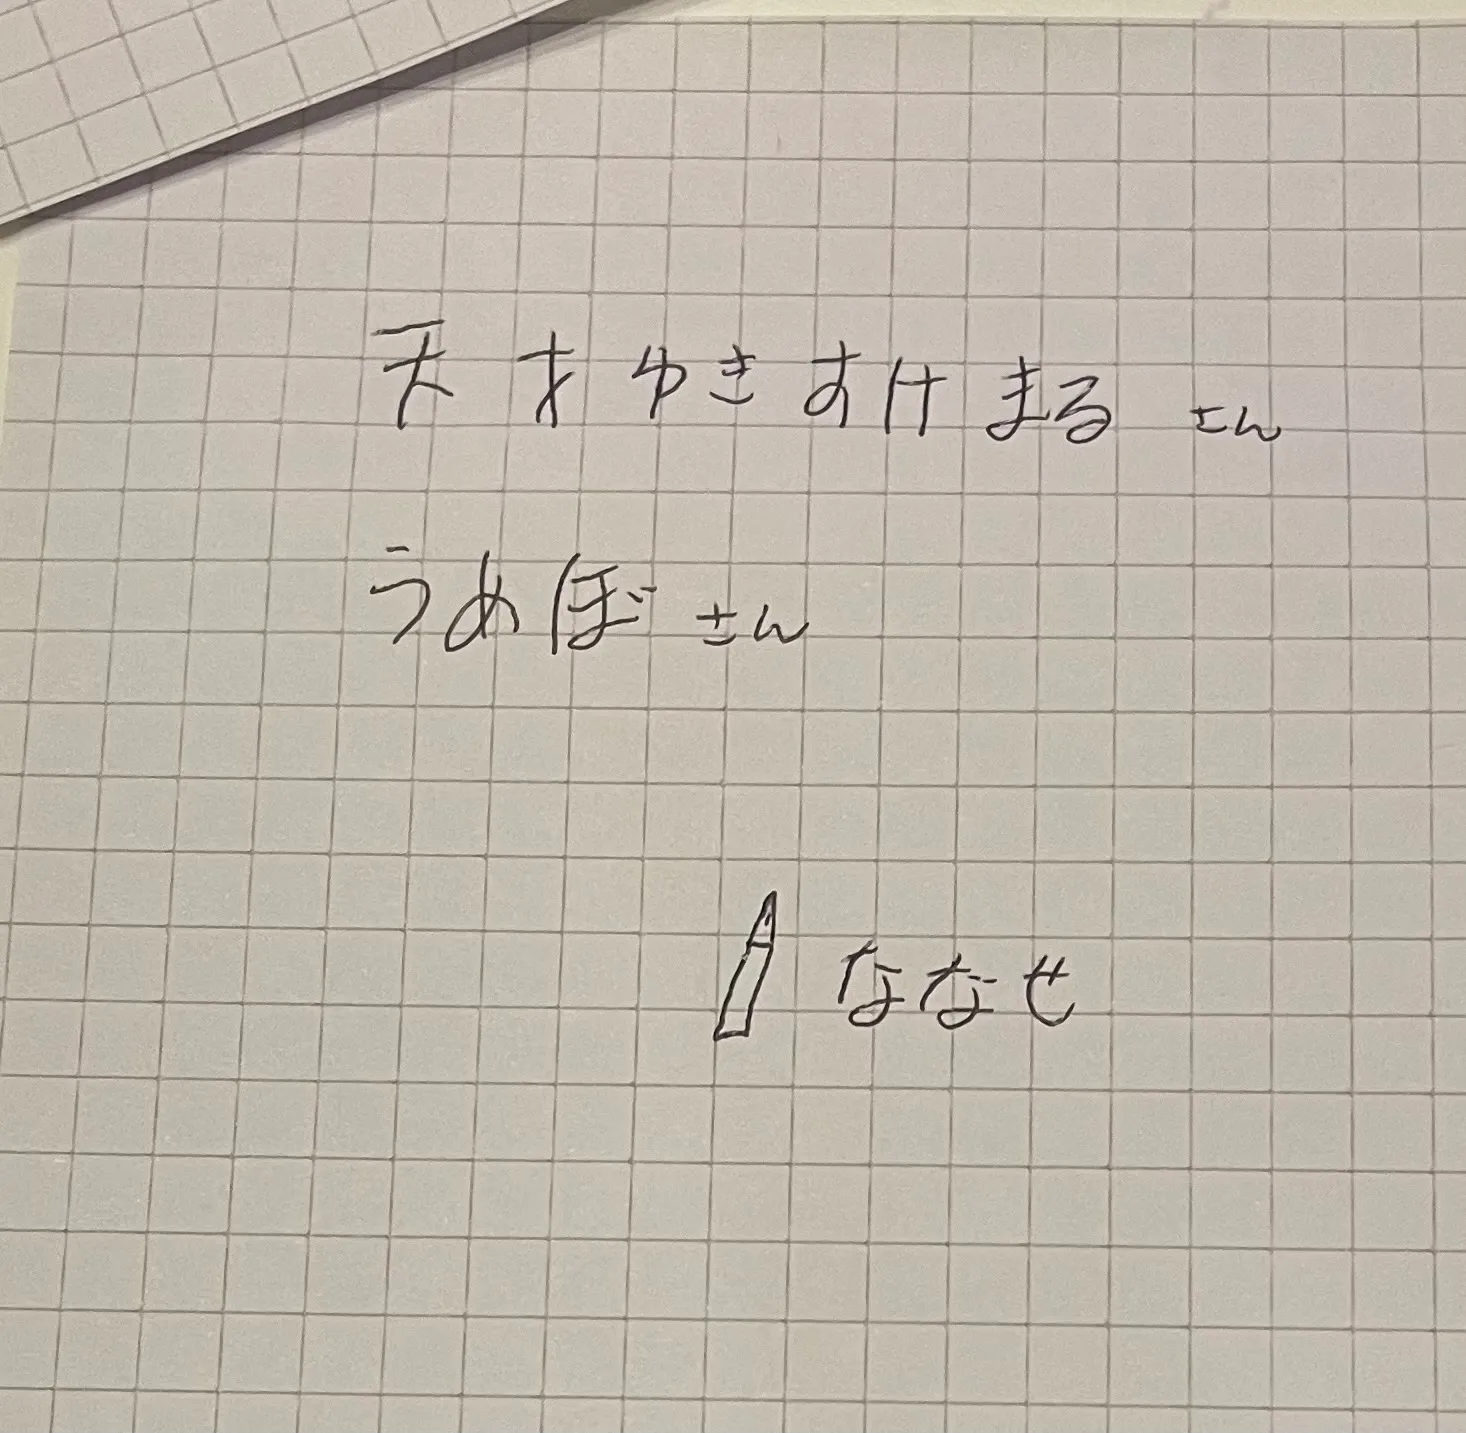 天才ゆきすけまるさん
うめぼさん
ななせ